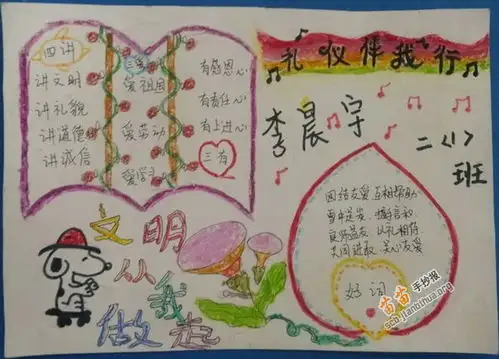 四讲
讲文明
讲礼貌
讲道德
讲诚信
三爱
爱祖国
爱劳动
爱学习
有感恩心
有责任心
有上进心
三有
礼仪伴我行
李晨宇
二<1>
班
团结友爱 互相帮助
雪中送炭 握手言和
良师益友 以礼相待
共同进取 关心友爱
好词
文明
从我
做起
苗苗手抄报
scb.jianbihua.org